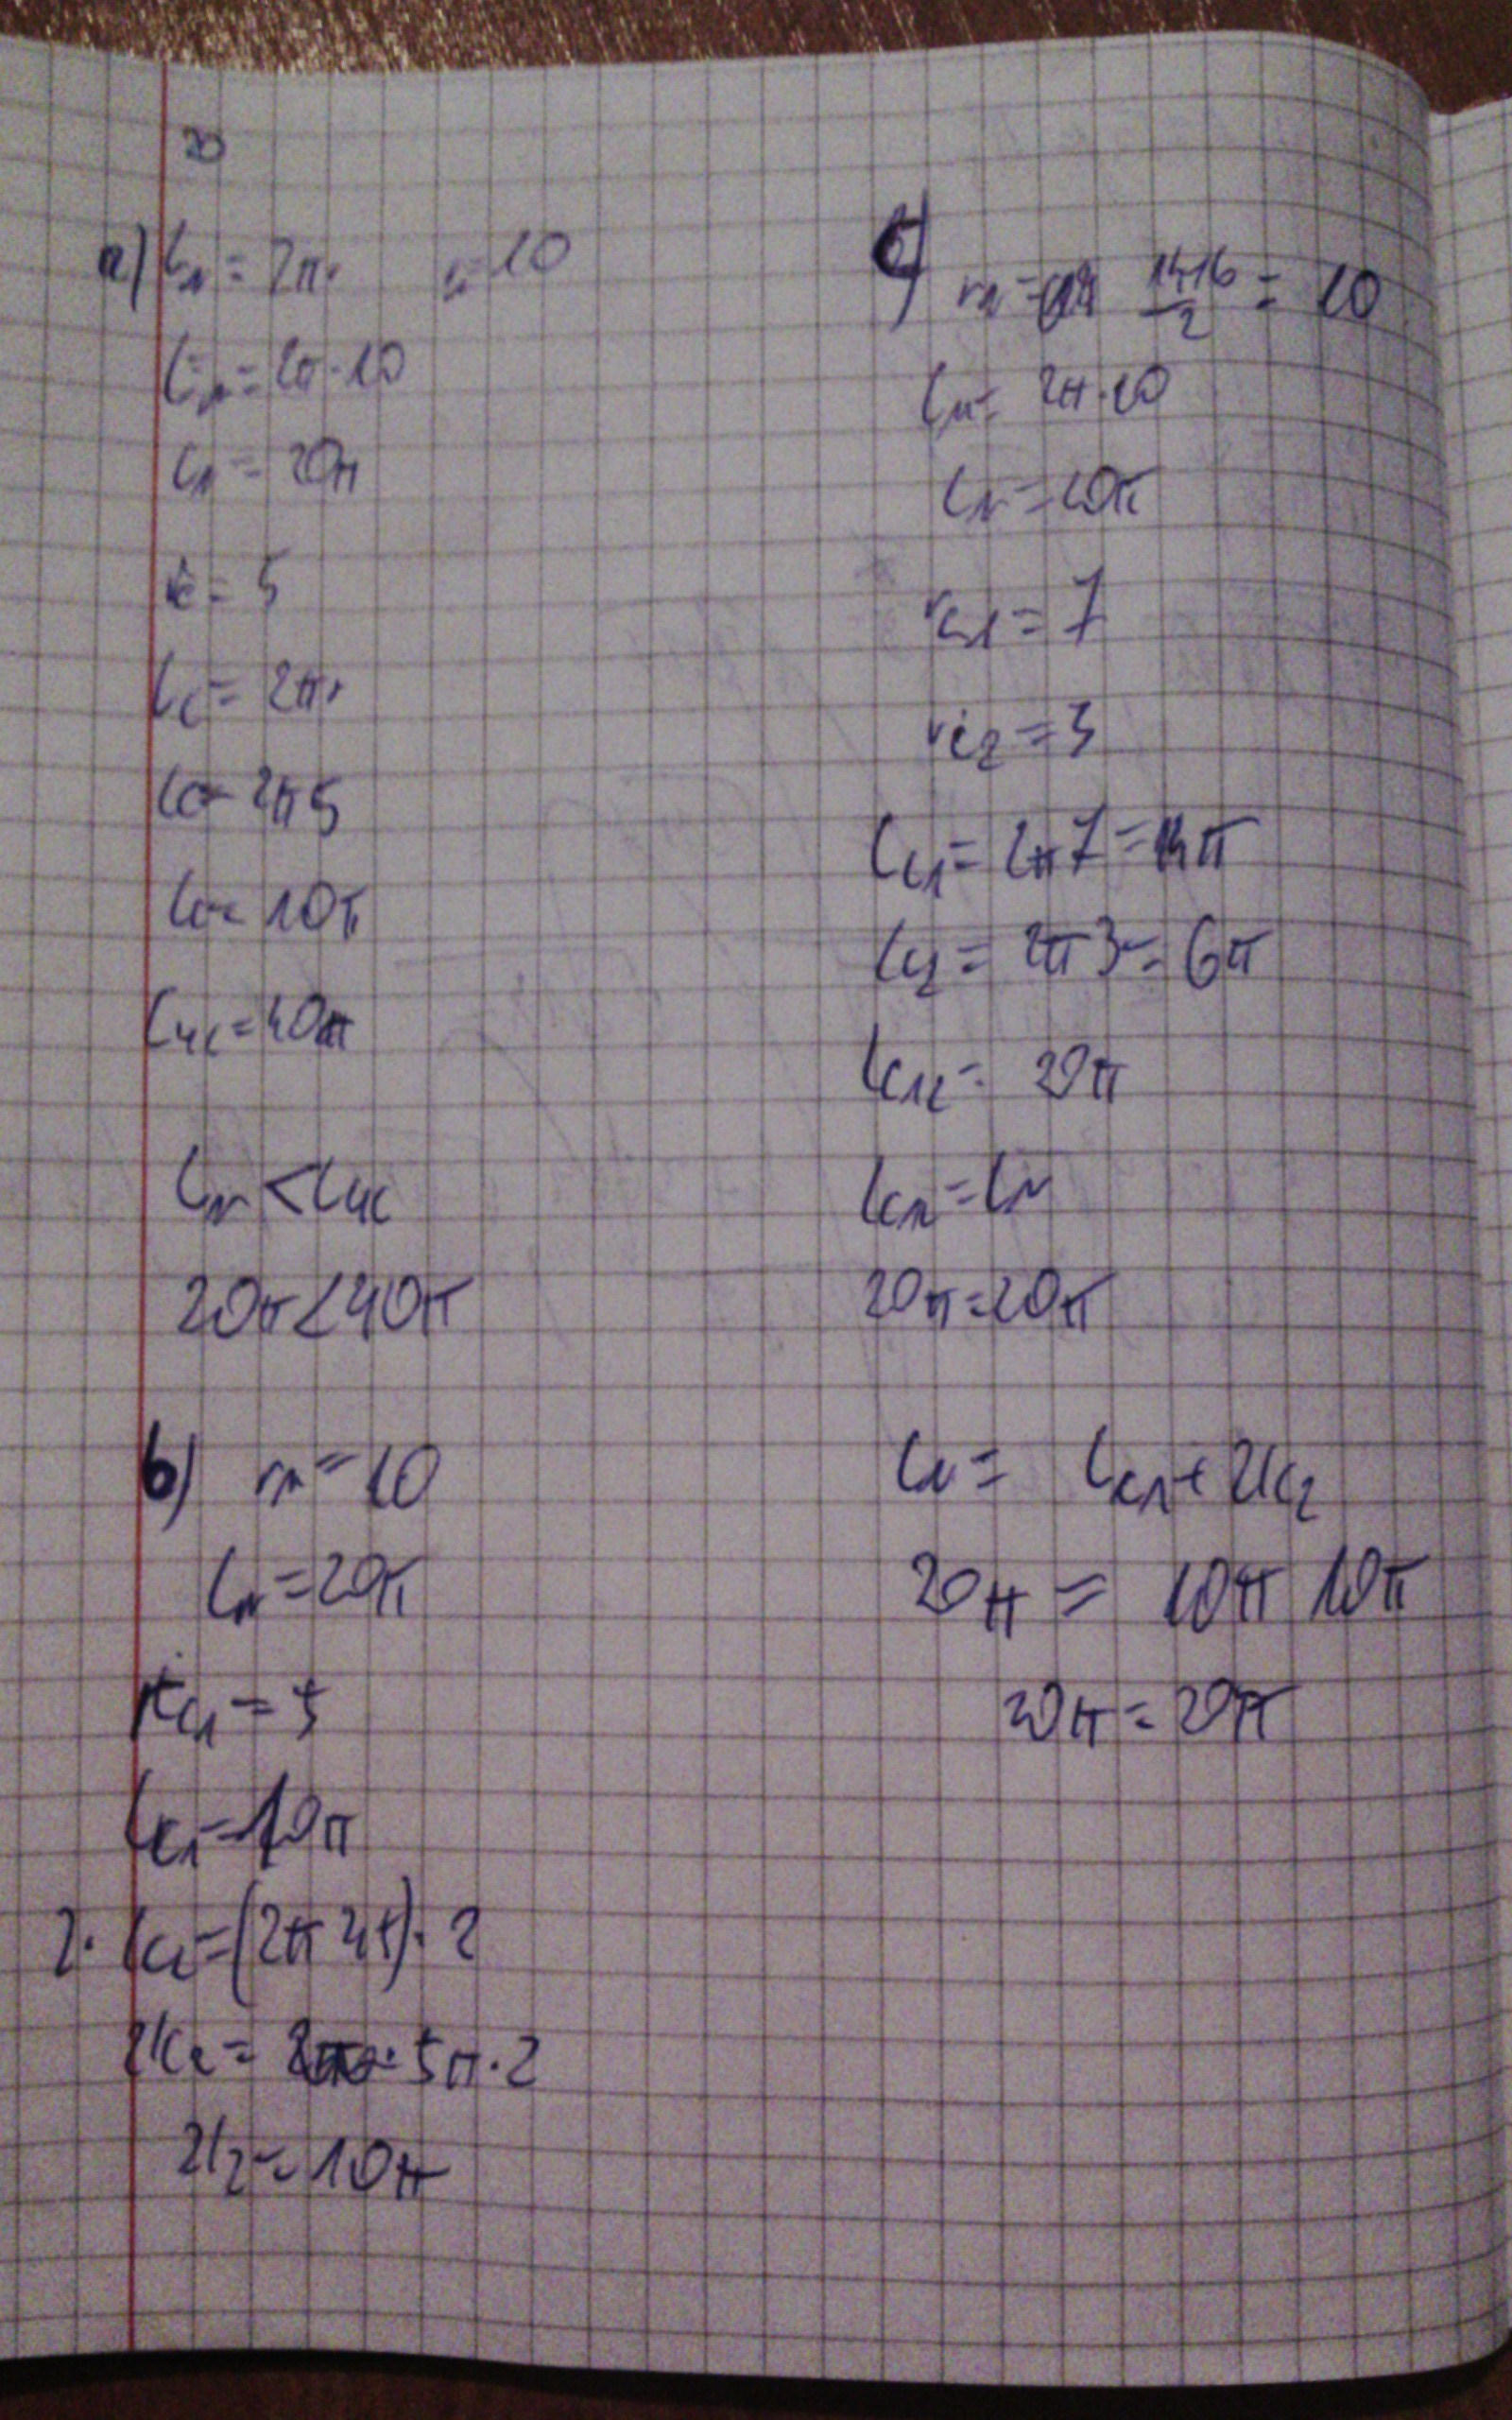 20
a) Ln = 2πr r=10
Ln = 2π·10
Ln = 20π
rc = 5
Lc = 2πr
Lc = 2π5
Lc = 10π
L4c = 40π
Ln < L4c
20π < 40π
b) rn = 10
Ln = 20π
rc1 = 5
Lc1 = 10π
2·Lc2 = (2π 2,5)·2
2Lc2 = 5π·2
2L2 = 10π
c) rn = 14+6/2 = 10
Ln = 2π·10
Ln = 20π
rc1 = 7
rc2 = 3
Lc1 = 2π7 = 14π
Lc2 = 2π3 = 6π
Lc12 = 20π
Lc12 = Ln
20π = 20π
Ln = Lc1 + 2Lc2
20π = 10π 10π
20π = 20π